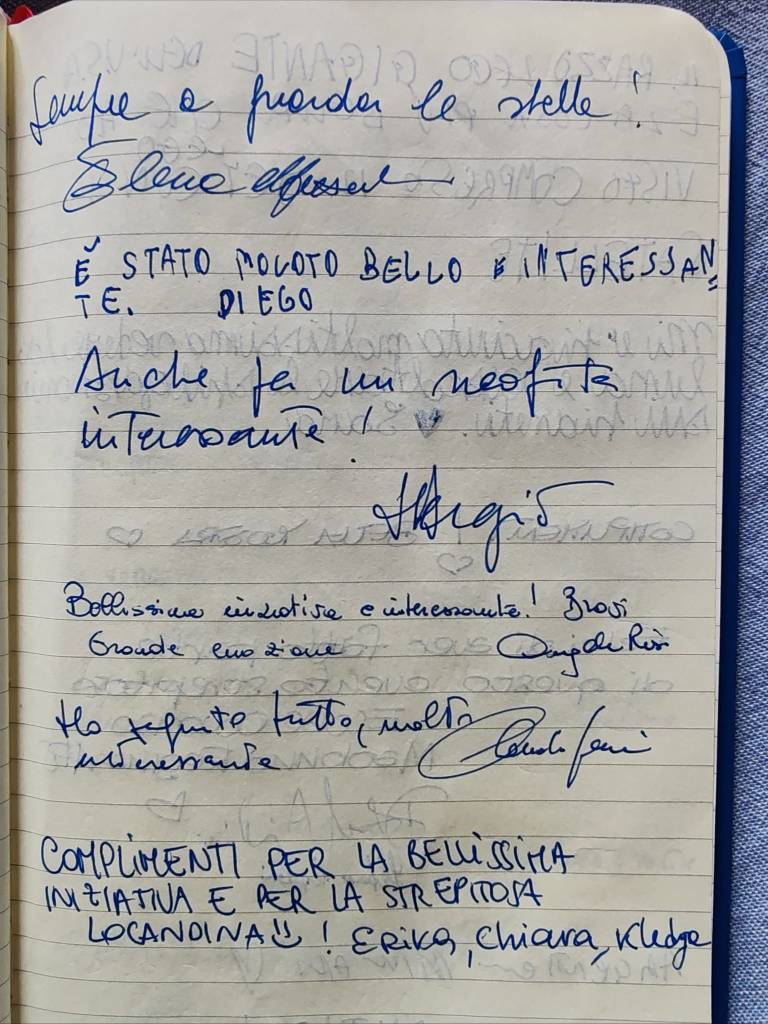 Sempre a guardar le stelle!
Elena
È STATO MOLOTO BELLO E INTERESSAN=
TE. DIEGO
Anche per un neofita
interessante!
Bellissima iniziativa e interessante! Bravi
Grande emozione
Ho seguito tutto, molto
interessante
COMPLIMENTI PER LA BELLISSIMA
INIZIATIVA E PER LA STREPITOSA
LOCANDINA! Erika, Chiara,